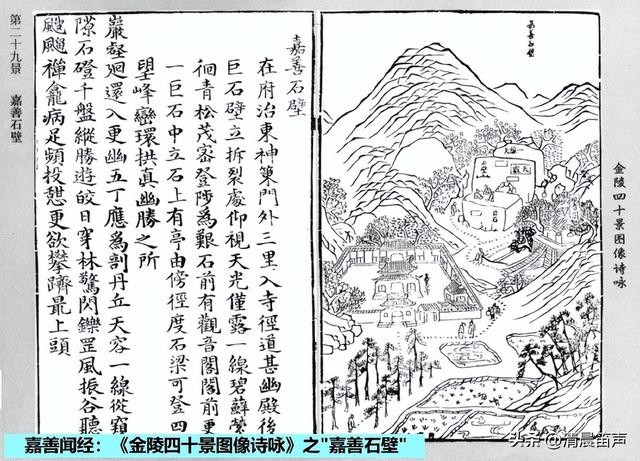 金陵四十景图像诗咏
嘉善石壁
嘉善石壁
在府治東神策門外三里入寺徑道甚幽殿後
巨石壁立拆裂處仰視天光僅露一線碧蘚縈
徊青松茂密登陟為艱石前有觀音閣閣前更
一巨石中立石上有亭由傍徑度石梁可登四
望峰巒環拱真幽勝之所
巖壑迴還入更幽五丁應為剖丹丘天容一線從窺
隙石磴千盤縱勝遊皎日穿林驚閃鑠罡風振谷聽
禪龕病足頻投憇更欲攀躋最上頭
第二十九景 嘉善石壁
嘉善闻经：《金陵四十景图像诗咏》之"嘉善石壁"
头条@清晨笛声